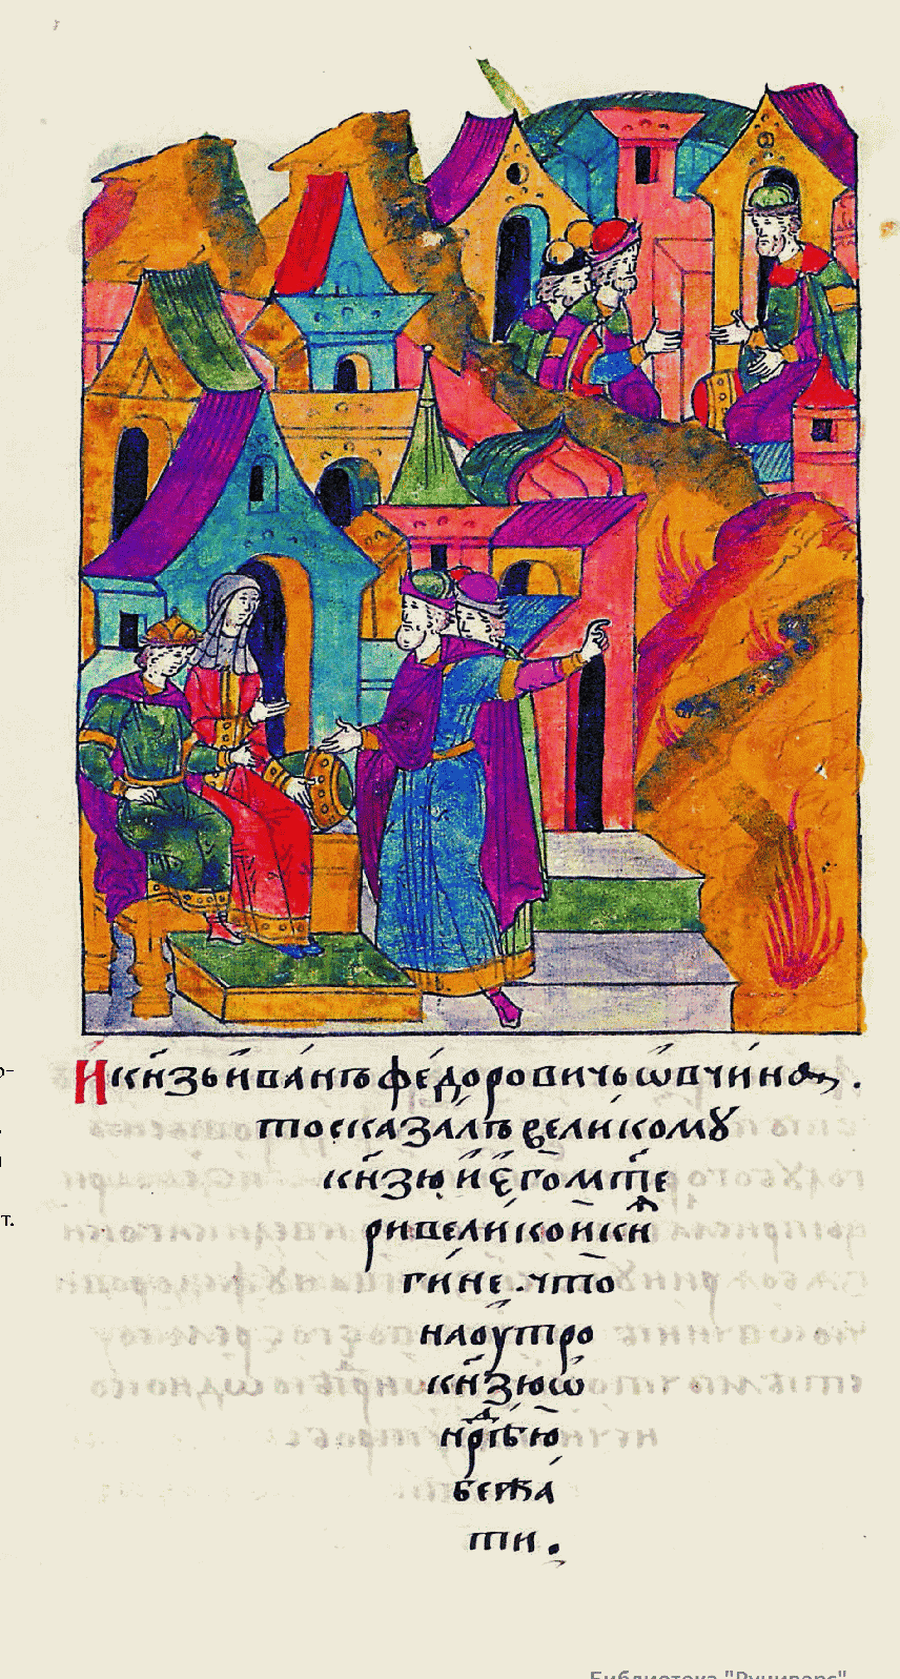 И кн҃зь ива́нъ фе́доровичь ѡвчи́на .
то сказа́лъ вели́кому
кн҃зю, и є҆го м҃те
ри вели́кой кнѧ
ги́не . что
наоутро
кн҃зю ѡ
нⷣрѣ́ю
бежа́
ти .
Библиотека "Руниверс"